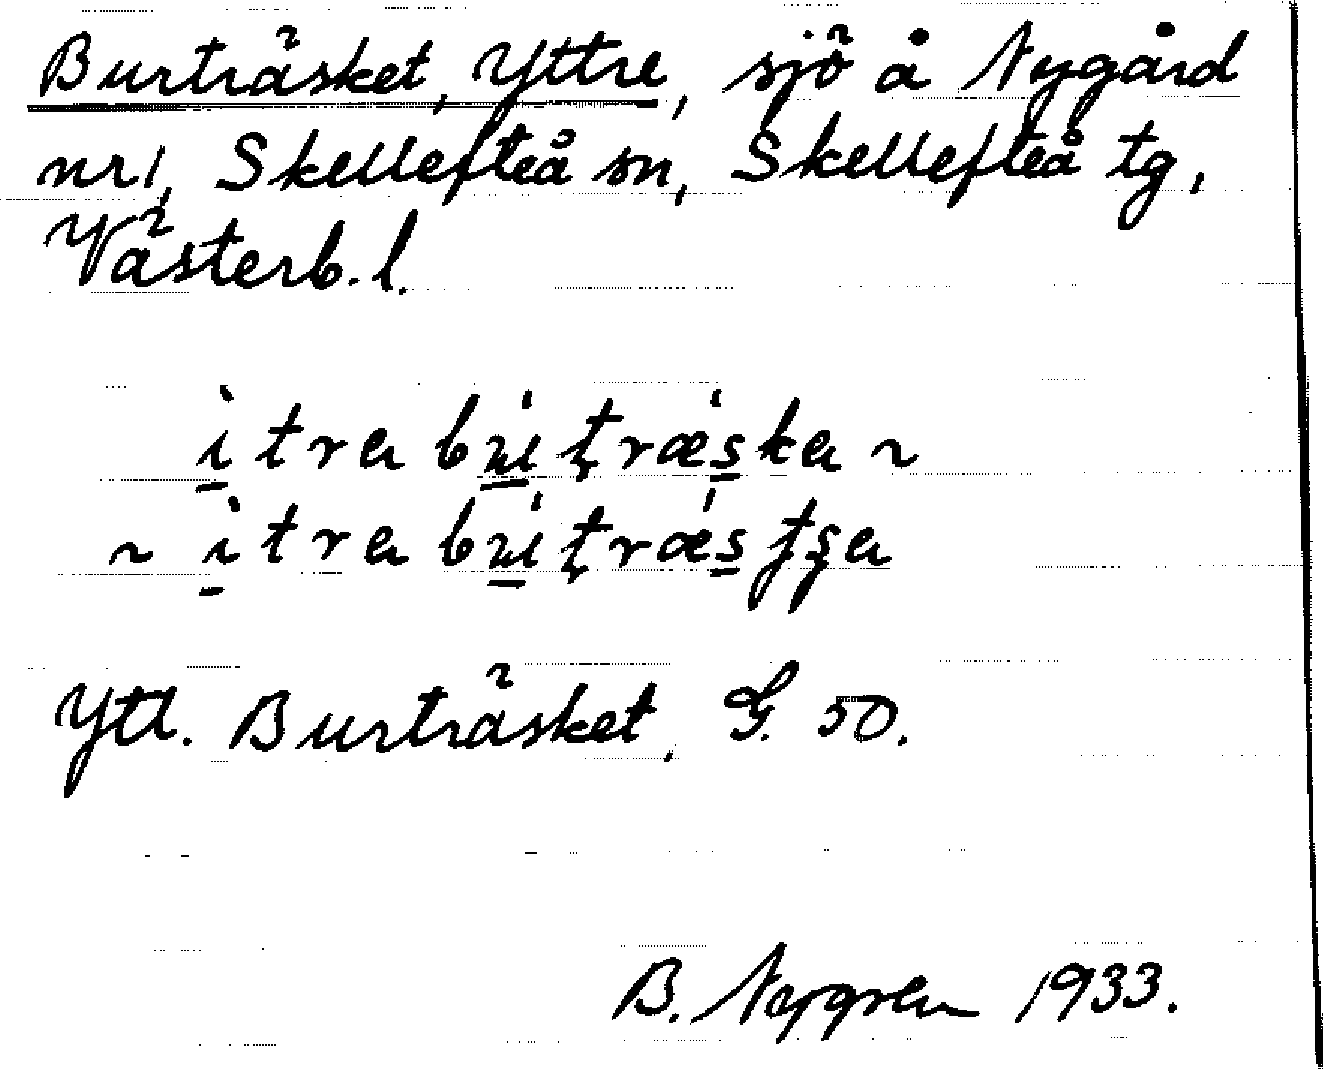 Burträsket, Yttre, sjö å Nygård
nr 1, Skellefteå sn, Skellefteå tg,
Västerb. l.
ì̠ tra bu̠̍ ʈræ̍s̠ka ~
~ ì̠ tra bu̠̍ ʈræ̍s̠ tʂa
Ytt. Burträsket. G. 50.
B. Nygren 1933.